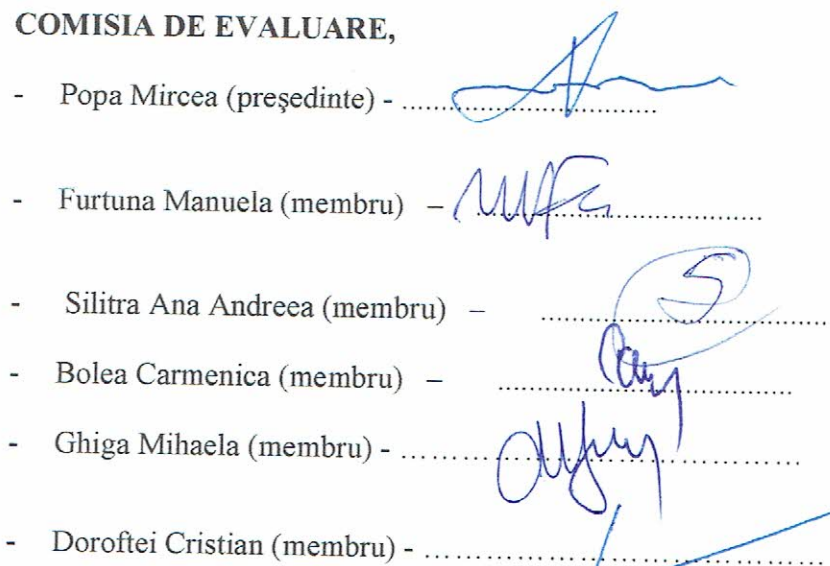 COMISIA DE EVALUARE,
- Popa Mircea (preşedinte) - ............................
- Furtuna Manuela (membru) – ..................................
- Silitra Ana Andreea (membru) – ................................
- Bolea Carmenica (membru) – ................................
- Ghiga Mihaela (membru) - .............................................
- Doroftei Cristian (membru) - ............................................